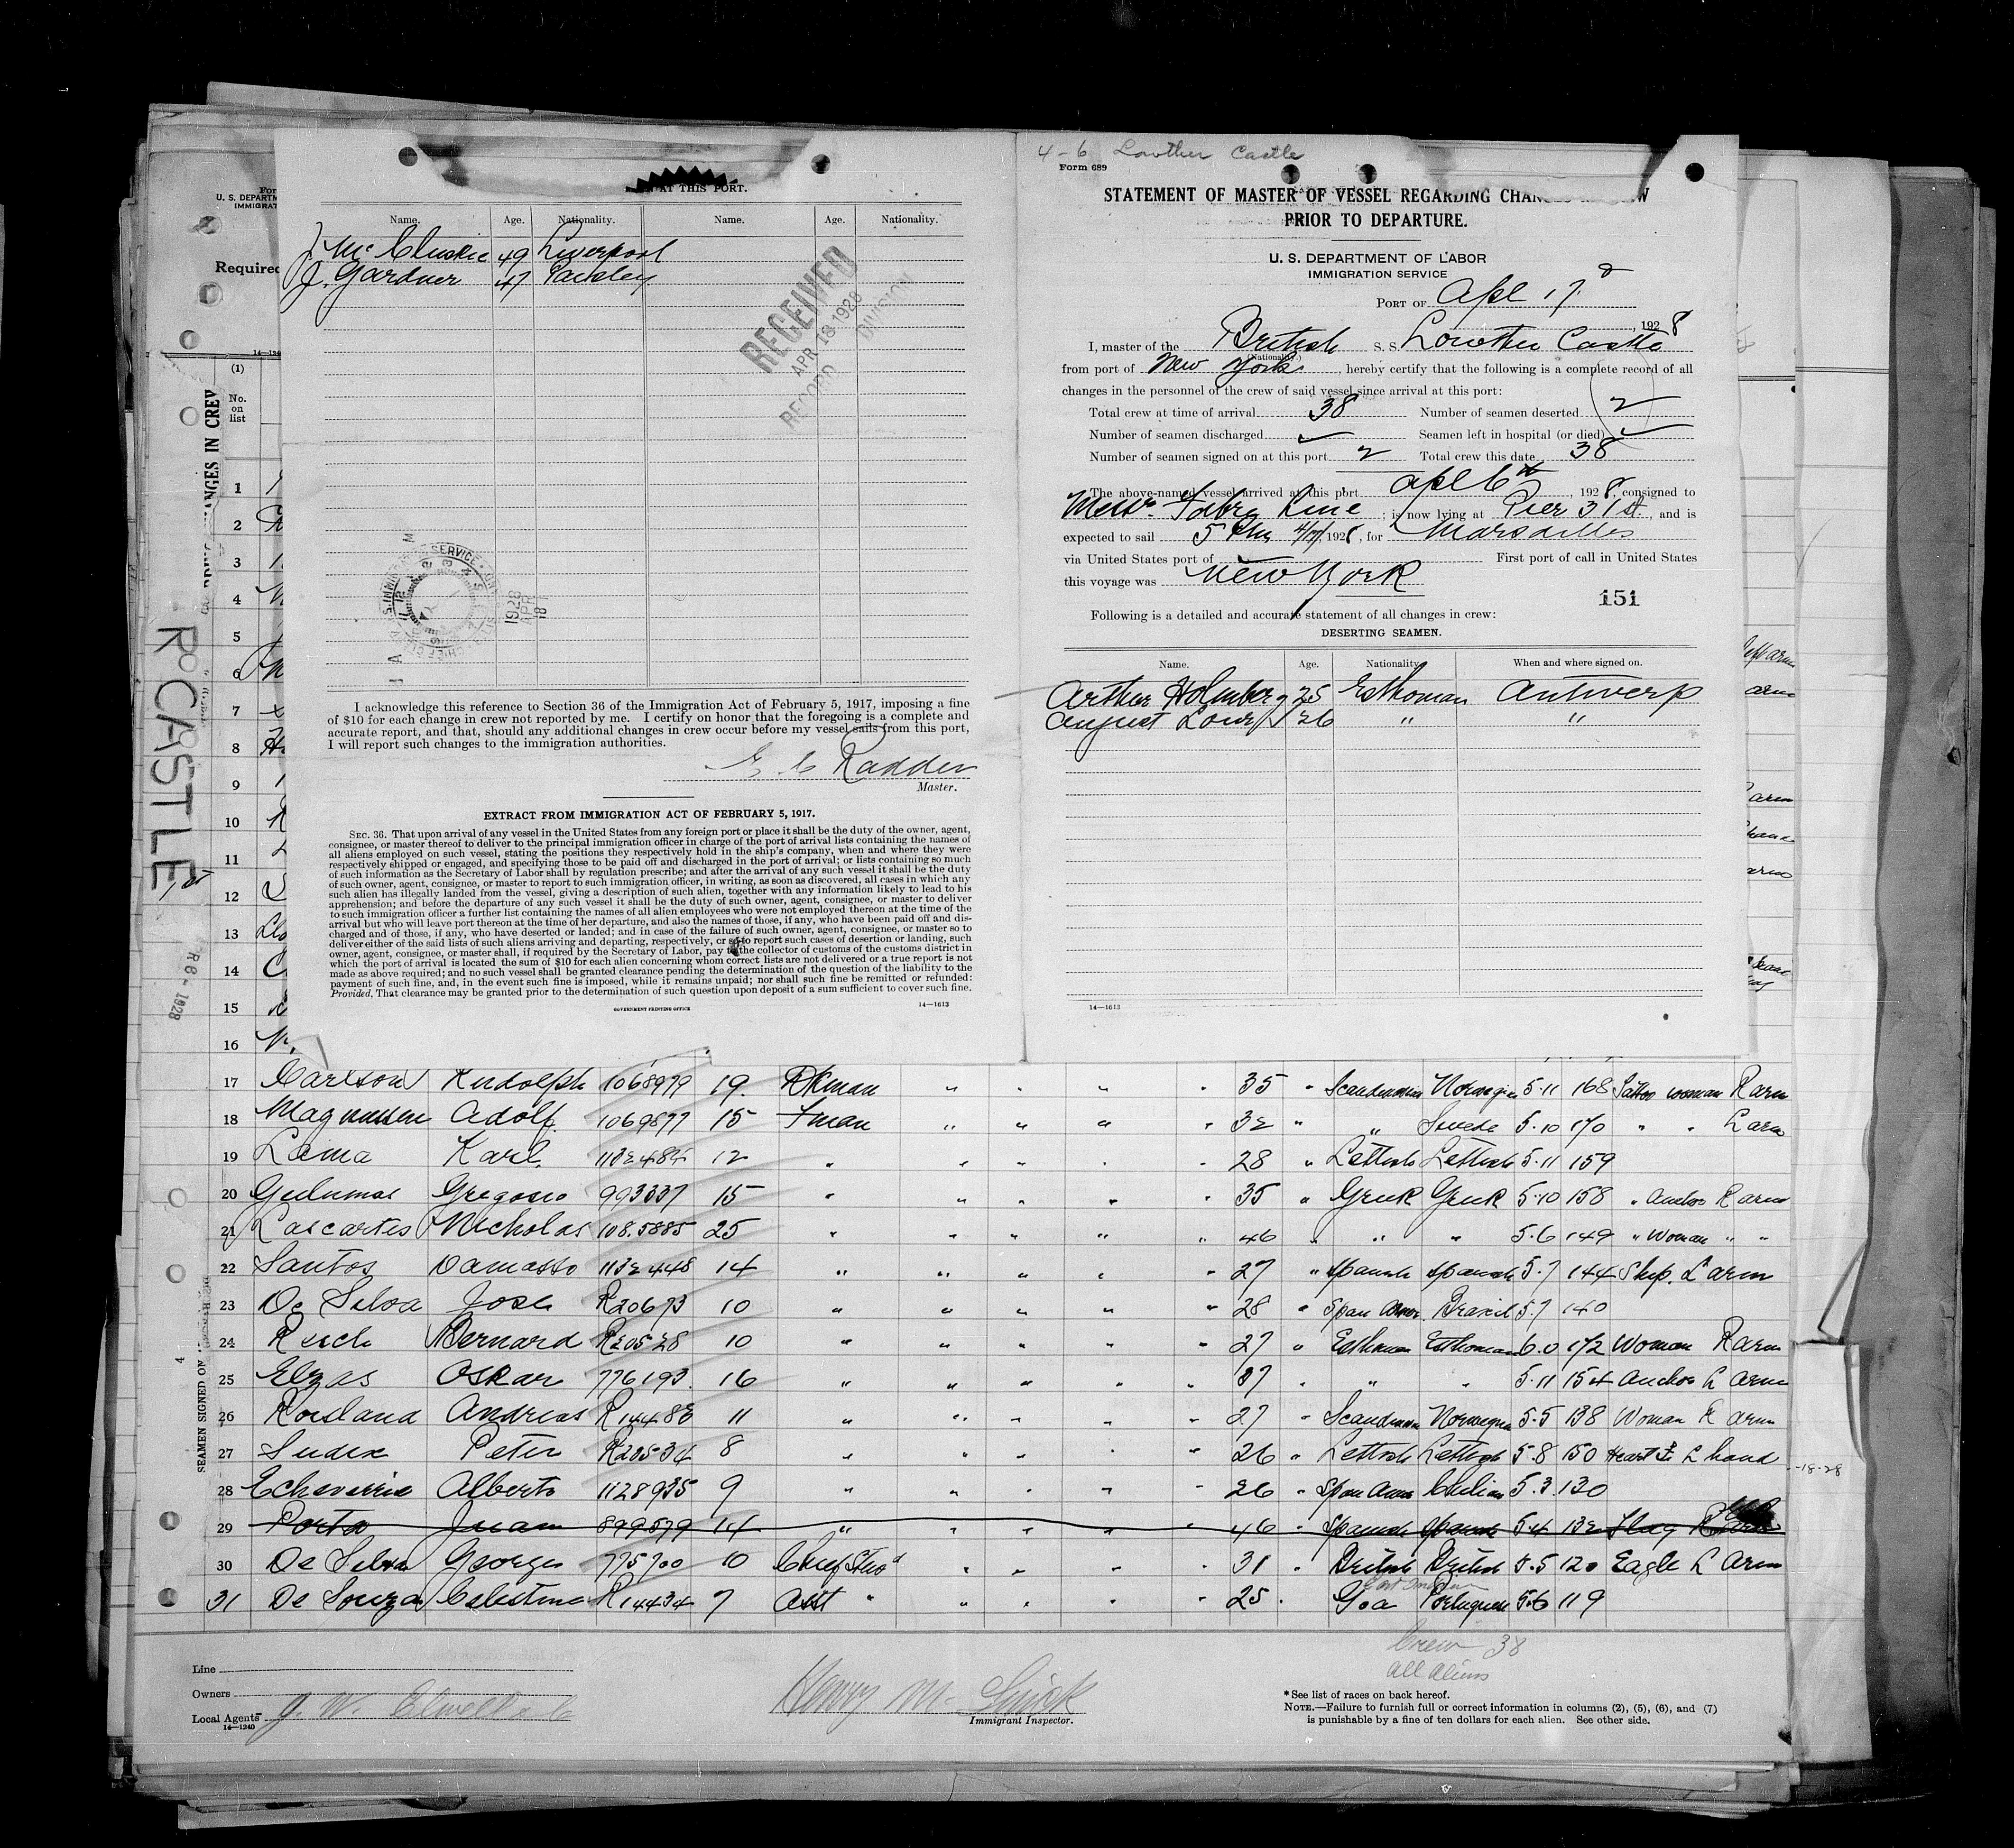 4-6 Lowther Castle
Form 689
STATEMENT OF MASTER OF VESSEL REGARDING CHANGES
PRIOR TO DEPARTURE.
U. S. DEPARTMENT OF LABOR
IMMIGRATION SERVICE
PORT OF Apl 17
, 1928
I, master of the British S. S. Lowther Castle
(Nationality.)
from port of New York, hereby certify that the following is a complete record of all
changes in the personnel of the crew of said vessel since arrival at this port:
Total crew at time of arrival 38 Number of seamen deserted 2
Number of seamen discharged Seamen left in hospital (or died)
Number of seamen signed on at this port 2 Total crew this date 38
The above-named vessel arrived at this port Apl 6th, 1928, consigned to
Messrs Fabre Line; is now lying at Pier 31st, and is
expected to sail 5 Pm 4/17/1928, for Marsailles
via United States port of First port of call in United States
this voyage was New York
151
Following is a detailed and accurate statement of all changes in crew:
DESERTING SEAMEN.
Name. Age. Nationality. When and where signed on.
Arthur Holmberg 25 Esthonian Antwerp
August 26 " "
14—1613
AT THIS PORT.
Name. Age. Nationality. Name. Age. Nationality.
J McCluskie 49 Liverpool
J. Gardner 47 Paisley
RECEIVED
APR 18 1928
RECORD DIVISION
I acknowledge this reference to Section 36 of the Immigration Act of February 5, 1917, imposing a fine
of $10 for each change in crew not reported by me. I certify on honor that the foregoing is a complete and
accurate report, and that, should any additional changes in crew occur before my vessel sails from this port,
I will report such changes to the immigration authorities.
Master.
EXTRACT FROM IMMIGRATION ACT OF FEBRUARY 5, 1917.
SEC. 36. That upon arrival of any vessel in the United States from any foreign port or place it shall be the duty of the owner, agent,
consignee, or master thereof to deliver to the principal immigration officer in charge of the port of arrival lists containing the names of
all aliens employed on such vessel, stating the positions they respectively hold in the ship's company, when and where they were
respectively shipped or engaged, and specifying those to be paid off and discharged in the port of arrival; or lists containing so much
of such information as the Secretary of Labor shall by regulation prescribe; and after the arrival of any such vessel it shall be the duty
of such owner, agent, consignee, or master to report to such immigration officer, in writing, as soon as discovered, all cases in which any
such alien has illegally landed from the vessel, giving a description of such alien, together with any information likely to lead to his
apprehension; and before the departure of any such vessel it shall be the duty of such owner, agent, consignee, or master to deliver
to such immigration officer a further list containing the names of all alien employees who were not employed thereon at the time of the
arrival but who will leave port thereon at the time of her departure, and also the names of those, if any, who have been paid off and dis-
charged and of those, if any, who have deserted or landed; and in case of the failure of such owner, agent, consignee, or master so to
deliver either of the said lists of such aliens arriving and departing, respectively, or so to report such cases of desertion or landing, such
owner, agent, consignee, or master shall, if required by the Secretary of Labor, pay to the collector of customs of the customs district in
which the port of arrival is located the sum of $10 for each alien concerning whom correct lists are not delivered or a true report is not
made as above required; and no such vessel shall be granted clearance pending the determination of the question of the liability to the
payment of such fine, and, in the event such fine is imposed, while it remains unpaid; nor shall such fine be remitted or refunded:
Provided, That clearance may be granted prior to the determination of such question upon deposit of a sum sufficient to cover such fine.
GOVERNMENT PRINTING OFFICE 14—1613
U. S. DEPARTM
IMMIGRAT
Required
14—1240
(1)
No.
on
list
CASTLE
1
2
3
4
5
6
7
8
9
10
11
12
13
14
15
16
SEAMEN SIGNED ON
17 Carlson Rudolph 1068979 19. " " " " 35 " Scandinavian Norwegian 5-11 168 Tattoo woman R arm
18 Magnussen Adolf. 1069877 15 Fman " " " " 32 " " Swede 5-10 170 " " L arm
19 Lama Karl. 1132484 12 " " " " " 28 " Lettish Lettish 5-11 159
20 Gregorio 993337 15 " " " " " 35 " Greek Greek 5-10 158 " Anchor R arm
21 Lascartes Nicholas 108.5885 25 " " " " " 46 " " " 5-6 149 " Woman " "
22 Santos Damasso 1132448 14 " " " " " 27 " Spanish Spanish 5-7 144 Ship. L arm
23 De Silva Jose R20673 10 " " " " " 28 " Span Amer. Brazil 5-7 140
24 Bernard R20528 10 " " " " " 27 " Esthonian Esthonian 6.0 172 Woman R arm
25 Elzas Oskar 776193 16 " " " " " 37 " " " 5-11 154 Anchor L arm
26 Rosland Andreas 11 " " " " " 27 " Scandinavian Norwegian 5-5 138 Woman R arm
27 Peter R20534 8 " " " " " 26 " Lettish Lettish 5-8 150 Heart L hand
28 Echeverria Alberto 1128935 9 " " " " " 26 " Span Amer Chilian 5.3 130
29 Porta Juan 899579 14 " " " " " 46 " Spanish Spanish 5-4 132 Flag R arm
30 De Silva George 775700 10 Chief Stwd " " " " 31 " British British 5-5 120 Eagle L Arm
East Indian
31 De Souza Celestine R14434 7 Asst " " " " " 25 " Goa Portuguese 5-6 119
Crew 38
all aliens
Line
Owners
Local Agents J. W. Elwell & Co
14—1240
Immigrant Inspector.
*See list of races on back hereof.
NOTE.—Failure to furnish full or correct information in columns (2), (5), (6), and (7)
is punishable by a fine of ten dollars for each alien. See other side.